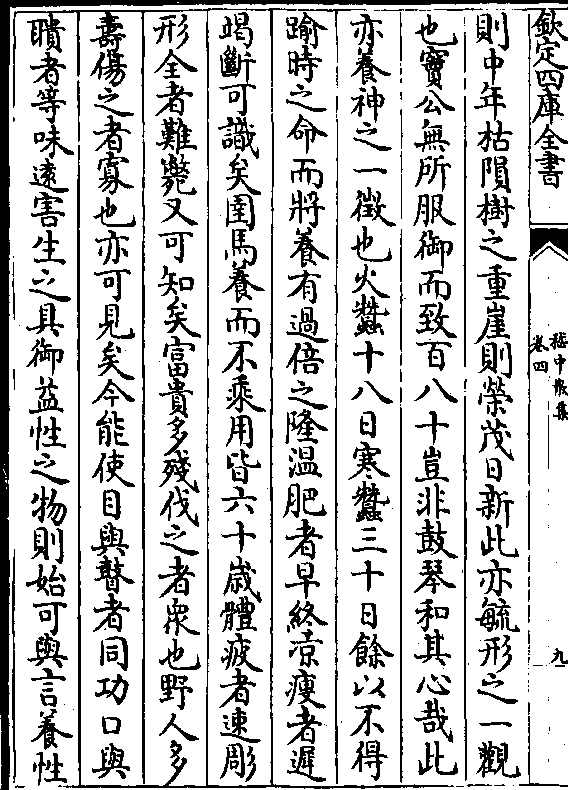 欽定四庫全書
嵇中散集
卷四
九
則中年枯隕樹之重崖則榮茂日新此亦毓形之一觀
也竇公無所服御而致百八十豈非鼓琴和其心哉此
亦養神之一徴也火蠶十八日寒蠶三十日餘以不得
踰時之命而將養有過倍之隆温肥者早終涼瘦者遲
竭斷可識矣圉馬養而不乘用皆六十歲體疲者速彫
形全者難斃又可知矣富貴多殘伐之者衆也野人多
壽傷之者寡也亦可見矣今能使目與瞽者同功口與
聵者等味逺害生之具御益性之物則始可與言養性